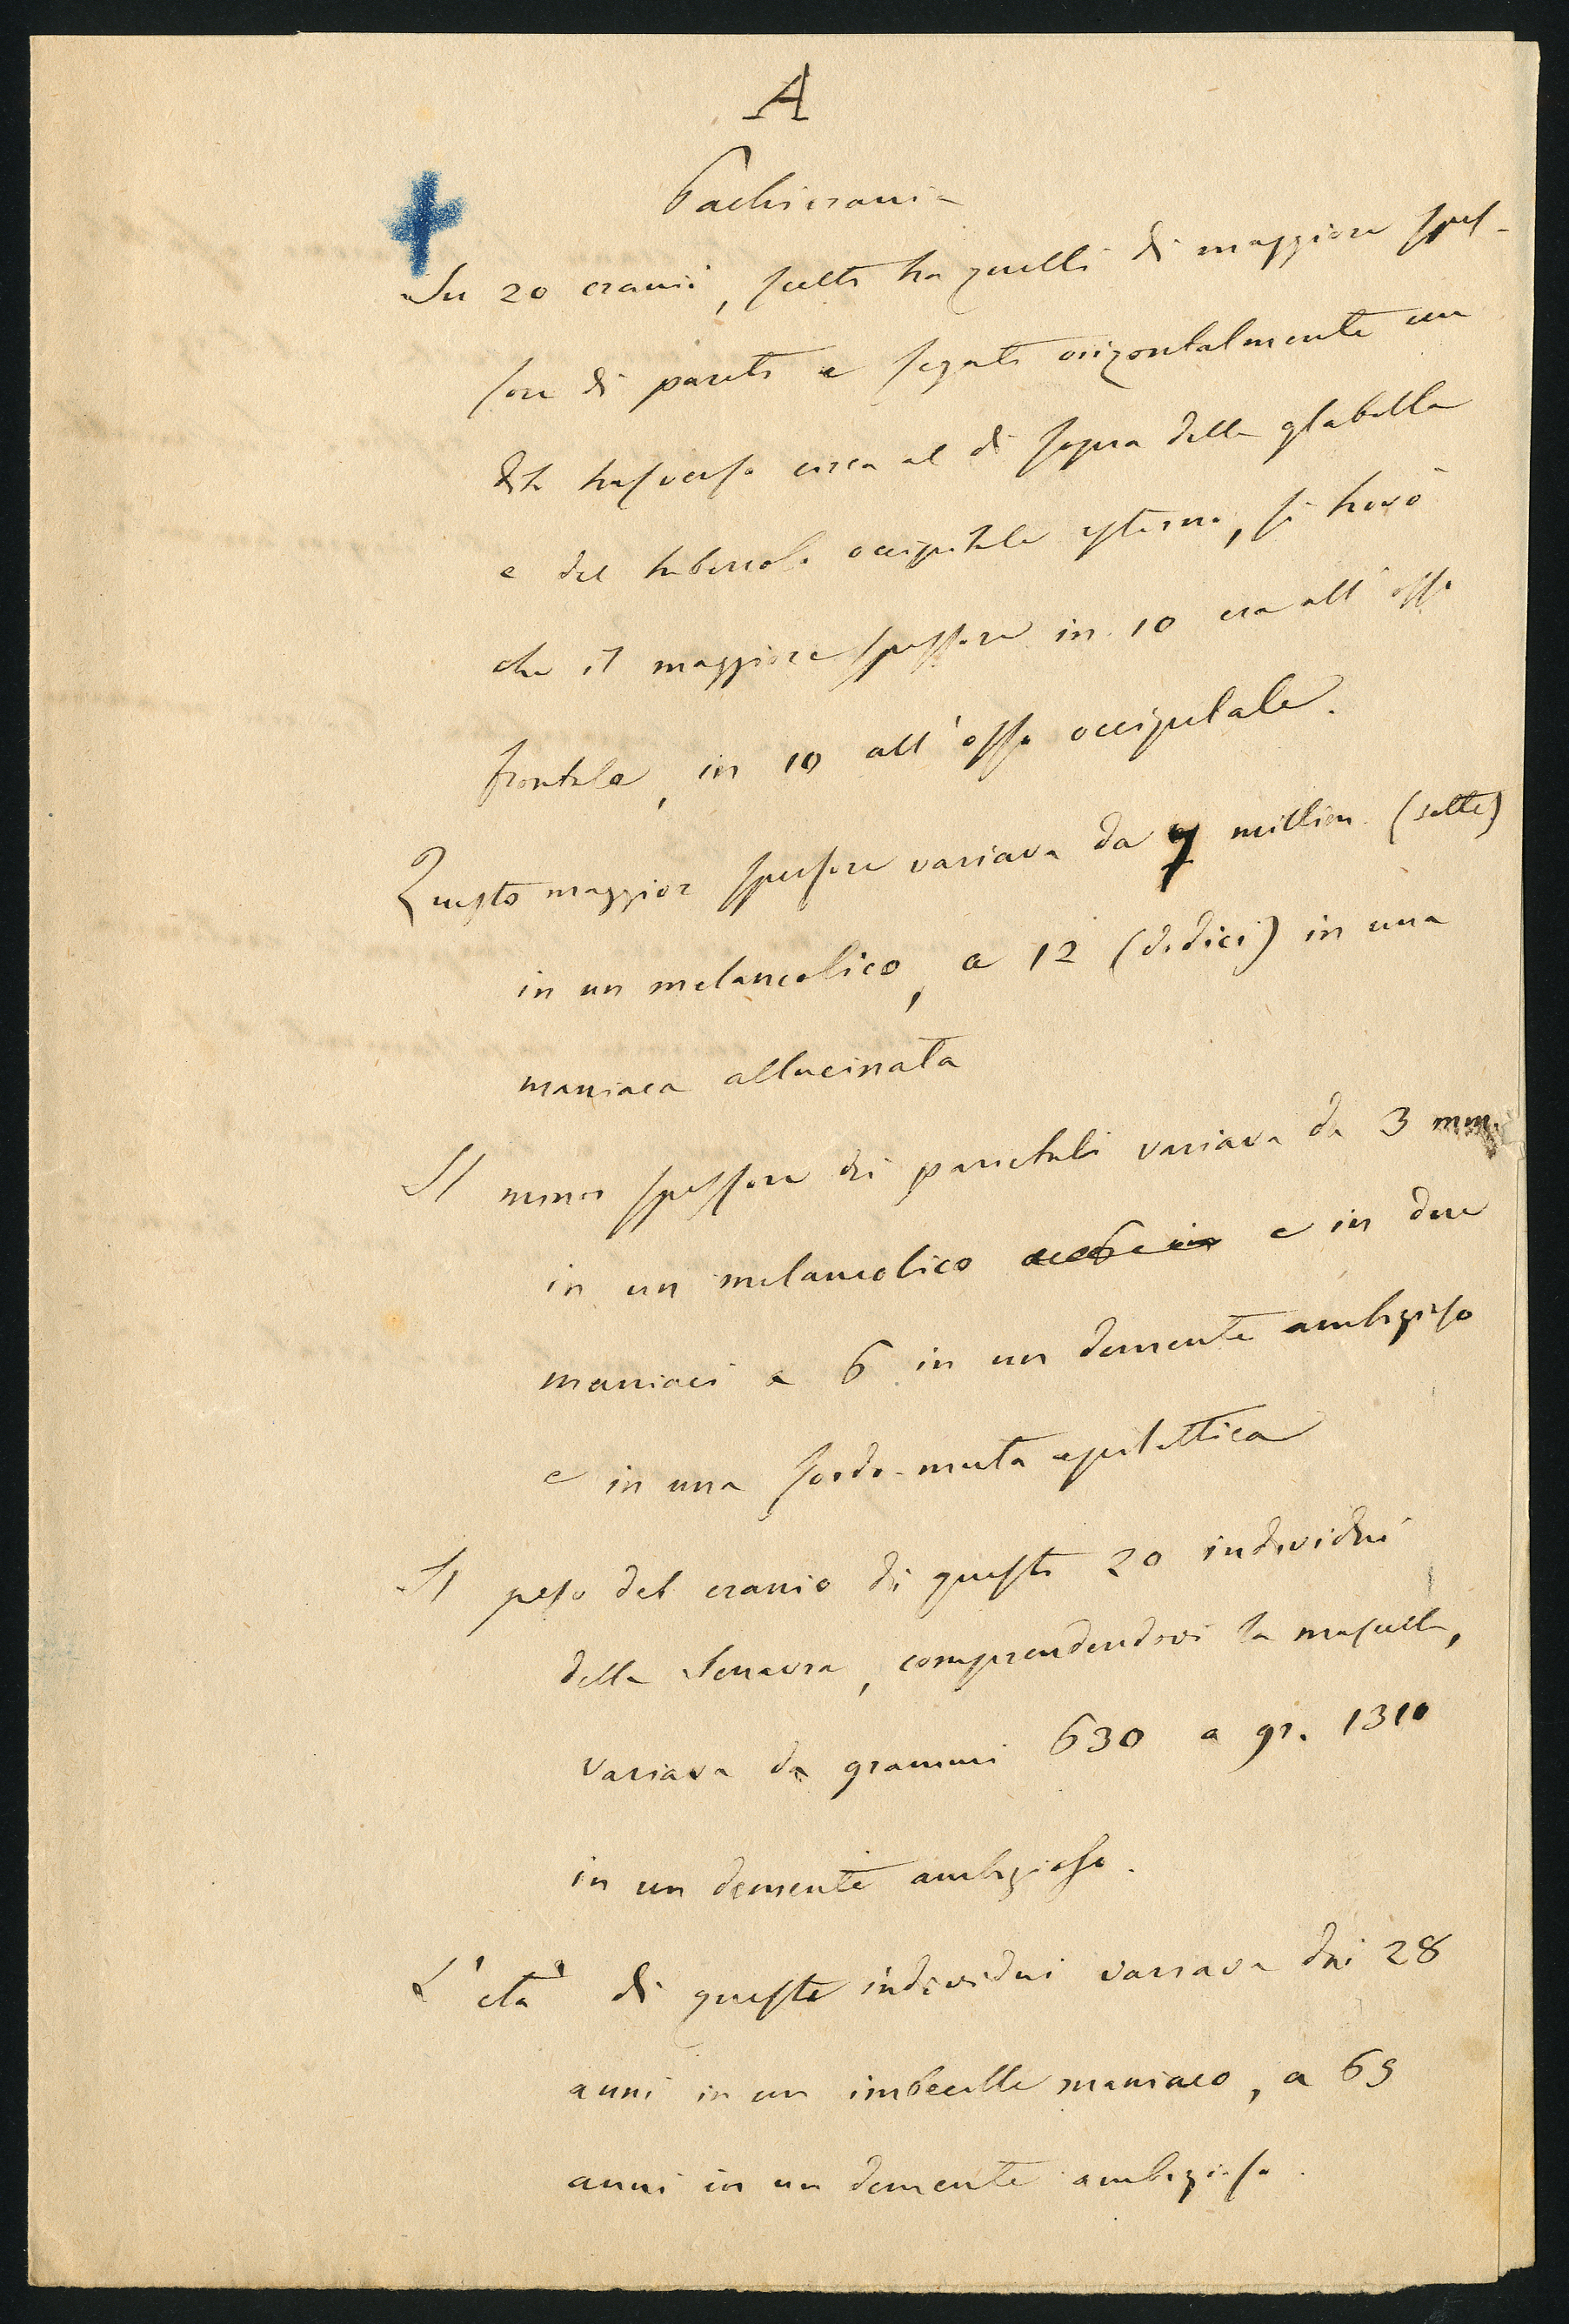 A
Pachicrania
Su 20 cranii, scelti tra quelli di maggiore spes-
sore di pareti e segati orizontalmente un
dito trasverso circa al di sopra della glabella
e del tubercolo occipitale esterno, si trovò
che il maggiore spessore in 10 era all'osso
frontale, in 10 all'osso occipitale.
Questo maggior spessore variava da 7 millim. (sette)
in un melancolico, a 12 (dodici) in una
maniaca allucinata
Il minor spessore dei parietali variava da 3 mm.
in un melancolico e in due
maniaci a 6 in un demente ambizioso
e in una sordo-muta epilettica
Il peso del cranio di questi 20 individui
della Senavra, comprendendovi la mascella,
variava da grammi 630 a gr. 1310
in un demente ambizioso.
L'età di questi individui variava dai 28
anni in un imbecille maniaco, a 69
anni in un demente ambizioso.